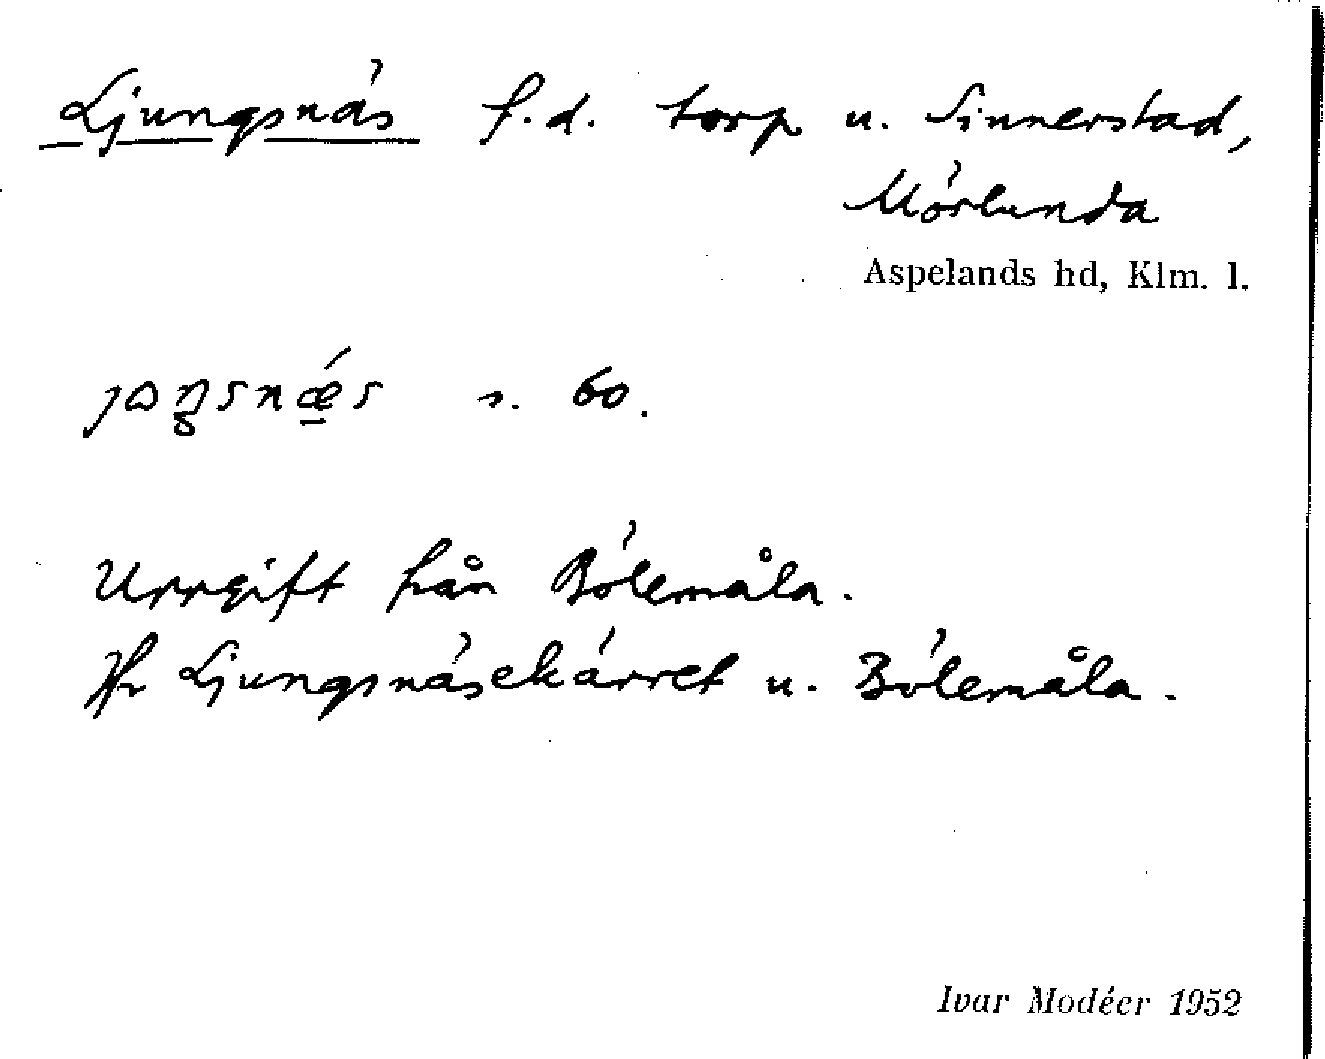 Ljungsnäs f.d. torp u. Sinnerstad,
Mörlunda
Aspelands hd, Klm. l.
s. 60.
Uppgift från Bölemåla.
Jfr Ljungsnäsekärret u. Bölemåla.
Ivar Modéer 1952